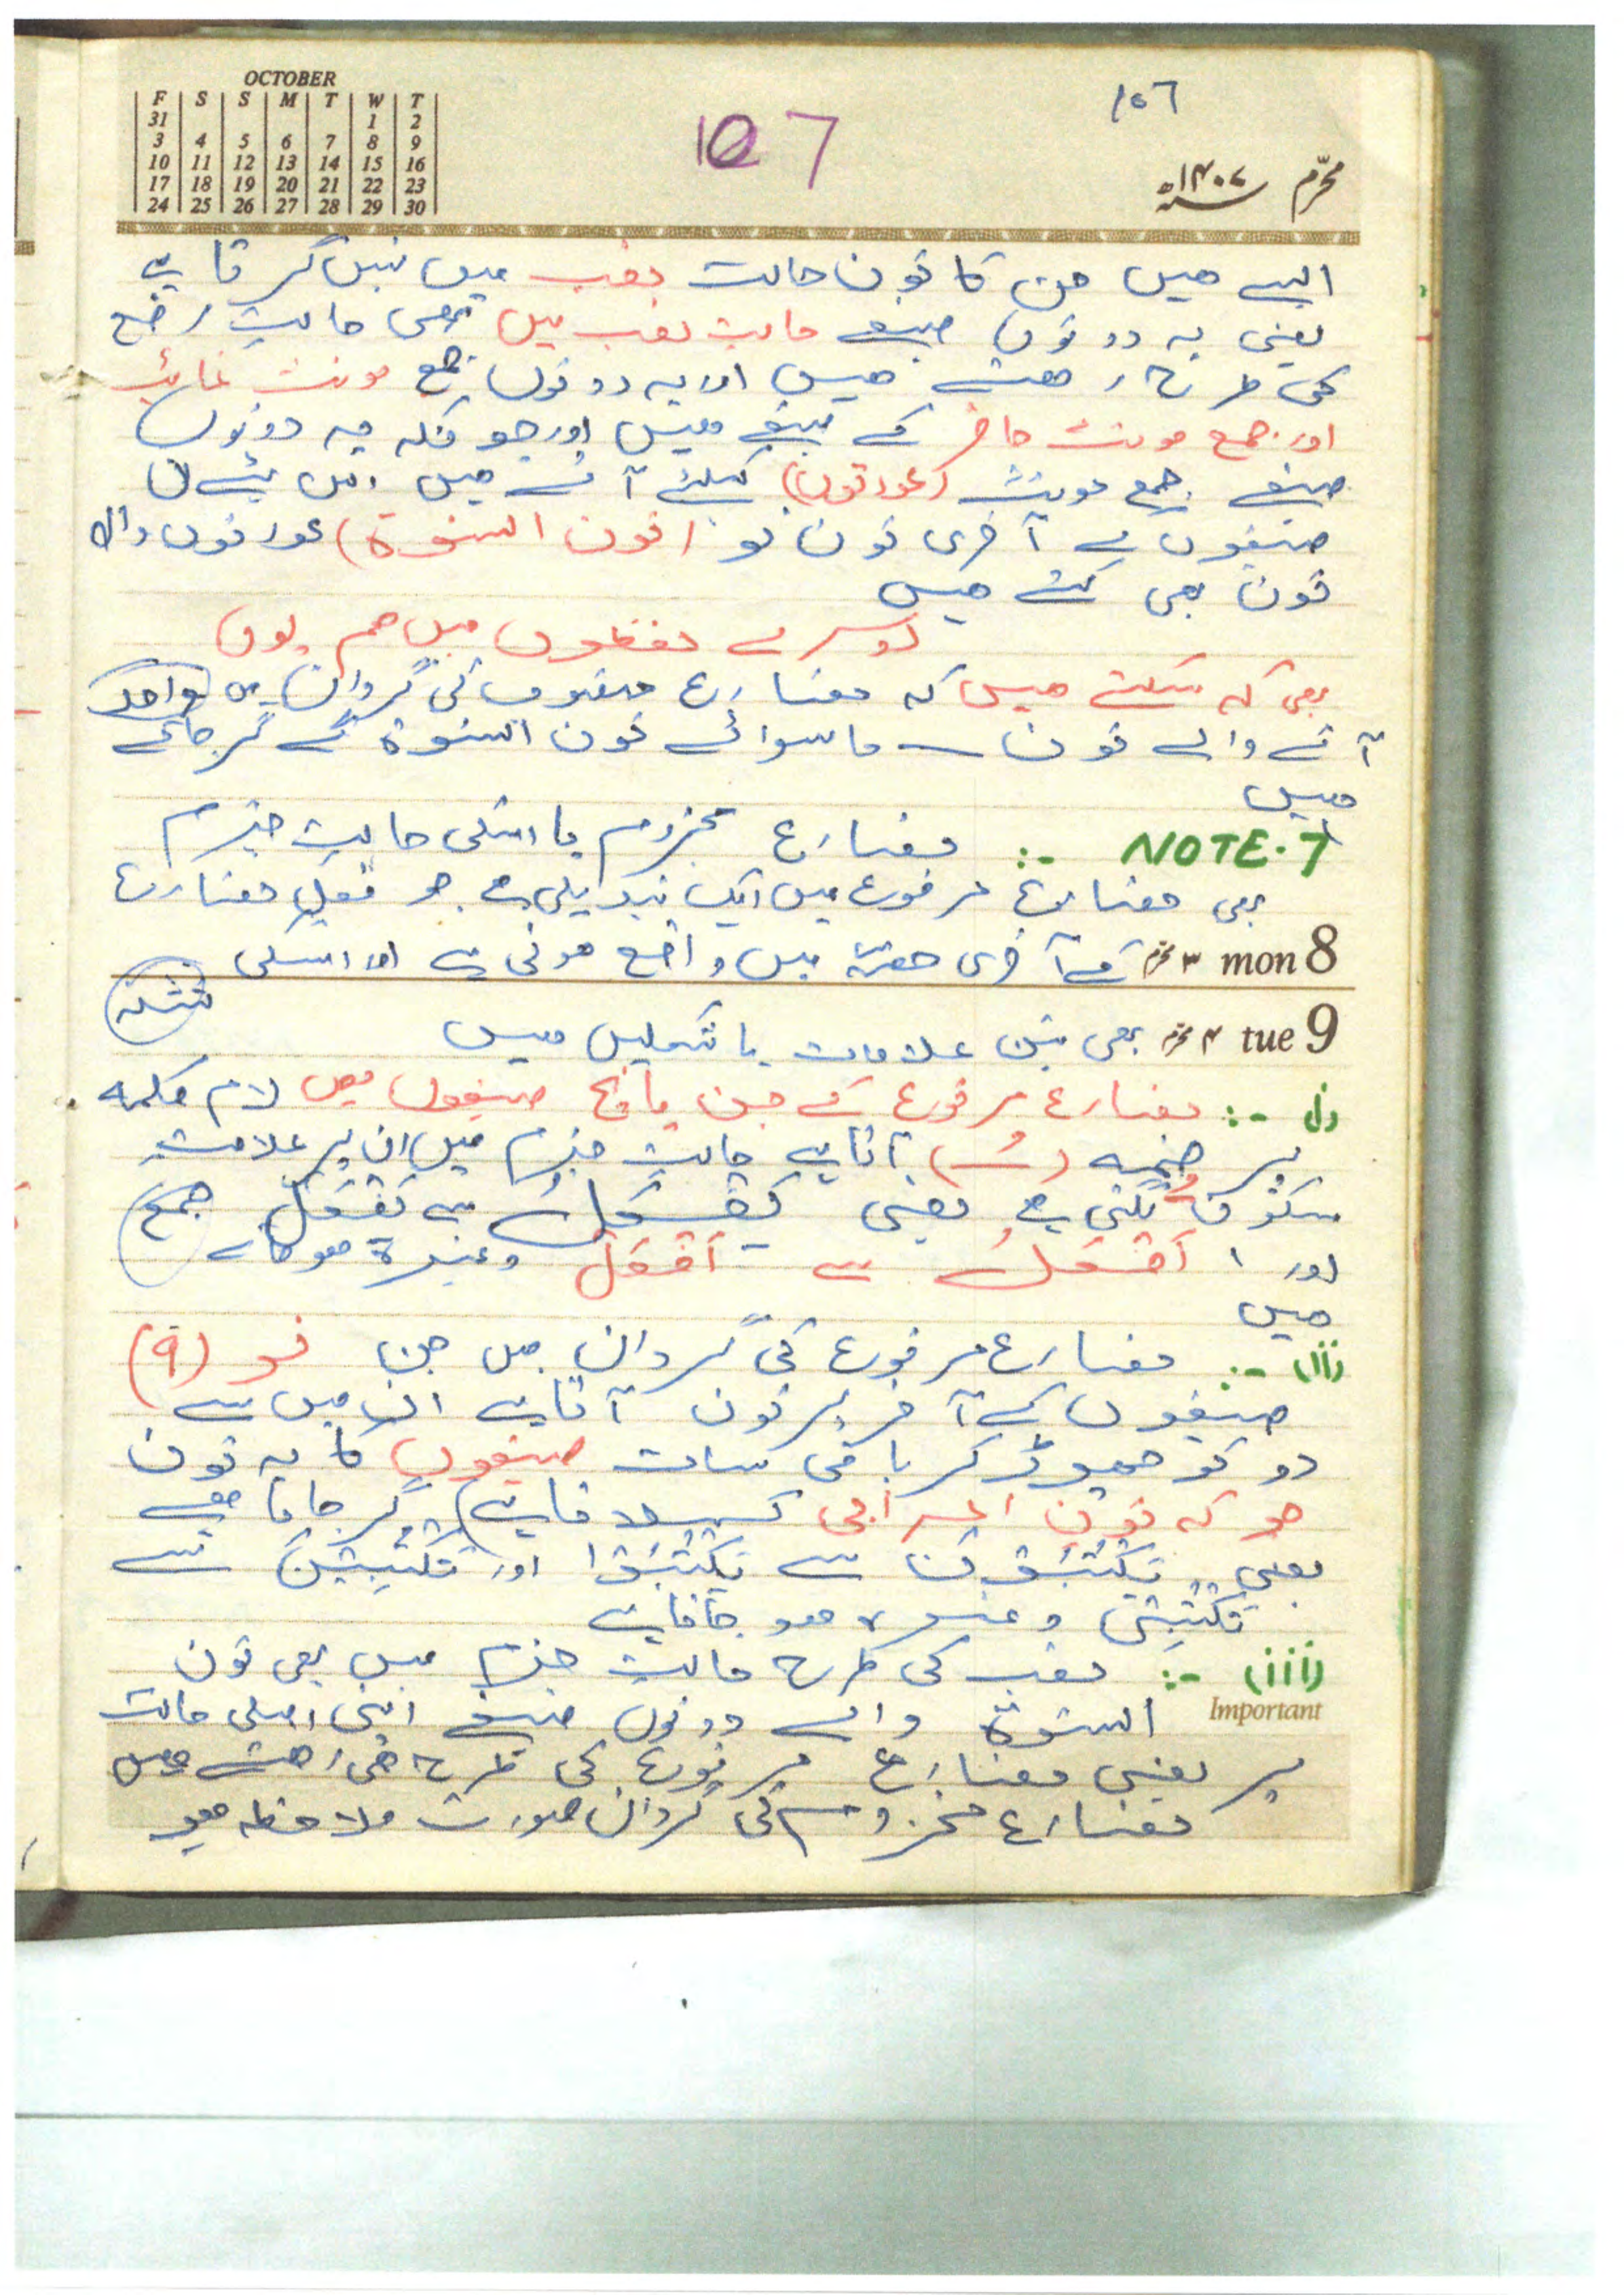 OCTOBER
F S S M T W T
31 1 2
3 4 5 6 7 8 9
10 11 12 13 14 15 16
17 18 19 20 21 22 23
24 25 26 27 28 29 30
107
107
محرّم ۱۴۰۷ھ
ایسے ہیں جن کا نون حالت نصب میں نہیں گرتا ہے
یعنی یہ دونوں صیغے حالت نصب میں بھی حالت رفع
کی طرح رہتے ہیں اور یہ دونوں جمع مونث غائب
اور جمع مونث حاضر کے صیغے ہیں اور چونکہ یہ دونوں
صیغے جمع مونث (عورتوں) کیلئے آتے ہیں اس لئے ان
صیغوں کے آخری نون کو (نون النسوة) عورتوں والا
نون بھی کہتے ہیں
دوسرے لفظوں میں ہم یوں
بھی کہ سکتے ہیں کہ مضارع منصوب کی گردان میں واحد
آنے والے نون سے ماسوائے نون النسوة کے گر جاتے
ہیں
NOTE.7 :- مضارع مجزوم یا اسکی حالت جزم
بھی مضارع مرفوع میں ایک تبدیلی ہے جو فعل مضارع
mon 8 ۳ محرم کے آخری حصّہ میں واقع ہوتی ہے اور اسکی
tue 9 ۴ محرم بھی تین علامات یا شکلیں ہیں
(i) :- مضارع مرفوع کے جن پانچ صیغوں میں لام کلمہ
پر ضمہ (ـُ) آتا ہے حالت جزم میں ان پر علامت
سکون لگتی ہے یعنی یَفْعَلُ سے یَفْعَلْ
اور أَفْعَلُ سے أَفْعَلْ وغیرہ ہو جاتے
ہیں
(ii) :- مضارع مرفوع کی گردان میں جن نو (۹)
صیغوں کے آخر پر نون آتا ہے ان میں سے
دو کو چھوڑ کر باقی سات صیغوں کا یہ نون
جو کہ نون اعرابی کہلاتا ہے، گر جاتا ہے
یعنی یَکْتُبُوْنَ سے یَکْتُبُوْا اور تَکْتُبِیْنَ سے
تَکْتُبِیْ وغیرہ ہو جاتا ہے
(iii) :- نصب کی طرح حالت جزم میں بھی نون
Important النسوة والے دونوں صیغے اپنی اصلی حالت
پر یعنی مضارع مرفوع کی طرح ہی رہتے ہیں
مضارع مجزوم کی گردان صورت ملاحظہ ہو